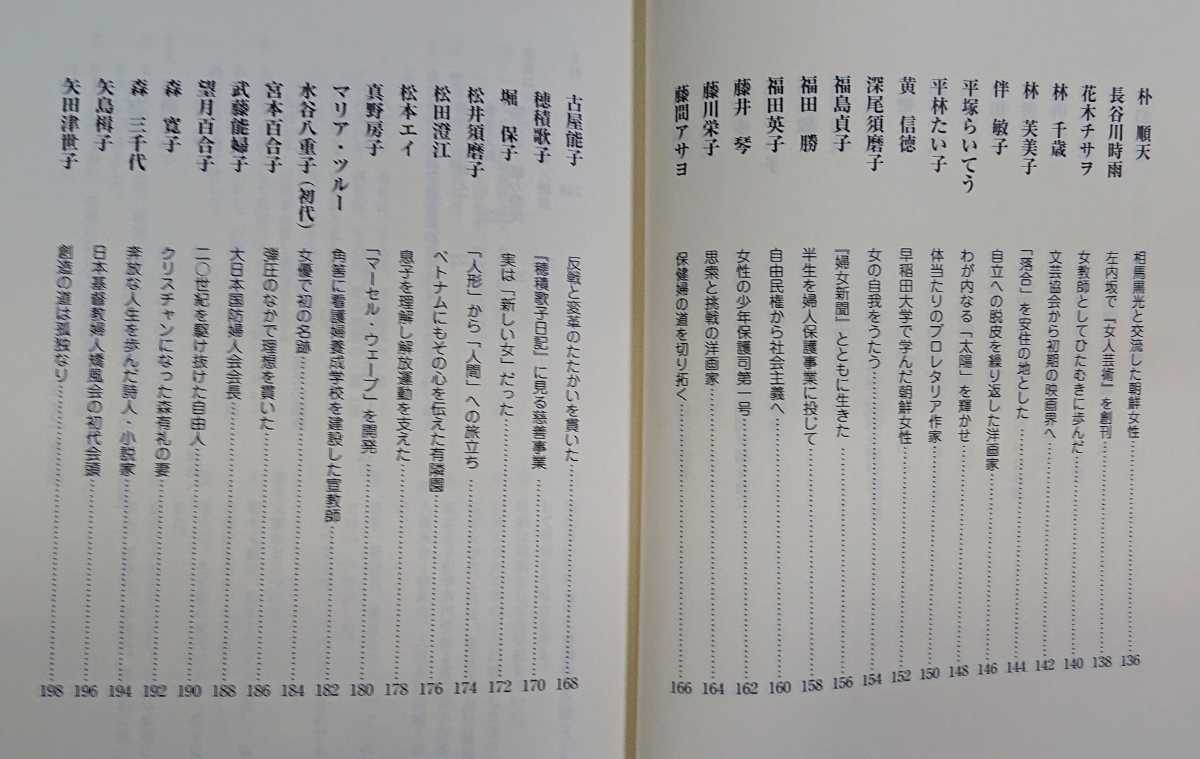 朴　順天　相馬黒光と交流した朝鮮女性……136
長谷川時雨　左内坂で『女人芸術』を創刊……138
花木チサヲ　女教師としてひたむきに歩んだ……140
林　千歳　文芸協会から初期の映画界へ……142
林　芙美子　「落合」を安住の地とした……144
伴　敏子　自立への脱皮を繰り返した洋画家……146
平塚らいてう　わが内なる「太陽」を輝かせ……148
平林たい子　体当たりのプロレタリア作家……150
黄　信徳　早稲田大学で学んだ朝鮮女性……152
深尾須磨子　女の自我をうたう……154
福島貞子　『婦女新聞』とともに生きた……156
福田　勝　半生を婦人保護事業に投じて……158
福田英子　自由民権から社会主義へ……160
藤井　琴　女性の少年保護司第一号……162
藤川栄子　思索と挑戦の洋画家……164
藤間アサヨ　保健婦の道を切り拓く……166
古屋能子　反戦と変革のたたかいを貫いた……168
穂積歌子　『穂積歌子日記』に見る慈善事業……170
堀　保子　実は「新しい女」だった……172
松井須磨子　「人形」から「人間」への旅立ち……174
松田澄江　ベトナムにもその心を伝えた有隣園……176
松本エイ　息子を理解し解放運動を支えた……178
真野房子　「マーセル・ウェーブ」を開発……180
マリア・ツルー　角筈に看護婦養成学校を建設した宣教師……182
水谷八重子（初代）　女優で初の名跡……184
宮本百合子　弾圧のなかで理想を貫いた……186
武藤能婦子　大日本国防婦人会会長……188
望月百合子　二〇世紀を駆け抜けた自由人……190
森　寛子　クリスチャンになった森有礼の妻……192
森　三千代　奔放な人生を歩んだ詩人・小説家……194
矢島楫子　日本基督教婦人矯風会の初代会頭……196
矢田津世子　創造の道は孤独なり……198